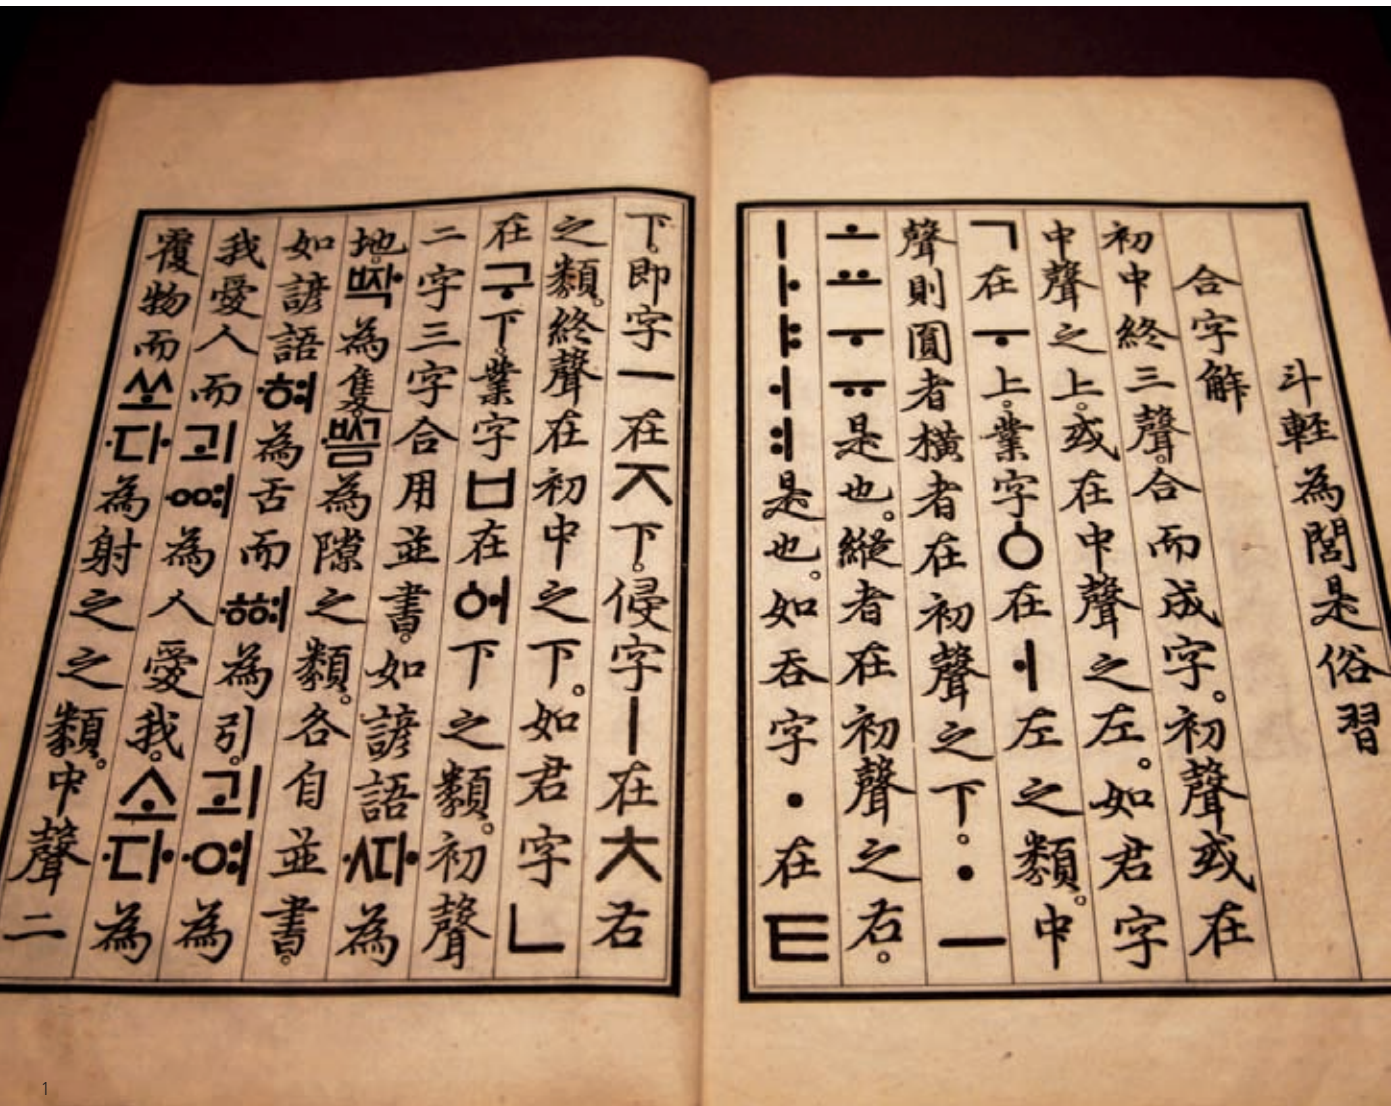 斗輕為閭是俗習
合字解
初中終三聲。合而成字。初聲或在
中聲之上。或在中聲之左。如君字
ㄱ在ㅜ上。業字ㆁ在ㅓ左之類。中
聲則圓者橫者在初聲之下。ㆍㅡ
ㅗㅛㅜㅠ是也。縱者在初聲之右。
ㅣㅏㅑㅓㅕ是也。如吞字ㆍ在ㅌ
下。即字ㅡ在ㅈ下。侵字ㅣ在ㅊ右
之類。終聲在初中之下。如君字ㄴ
在구下。業字ㅂ在ᅌᅥ下之類。初聲
二字三字合用並書。如諺語·ᄯᅡ為
地。ᄧᅡᆨ為隻·ᄢᅳᆷ為隙之類。各自並書。
如諺語·혀為舌而·ᅘᅧ為引。괴·여為
我愛人而괴·ᅇᅧ為人愛我。소·다為
覆物而쏘·다為射之之類。中聲二
1